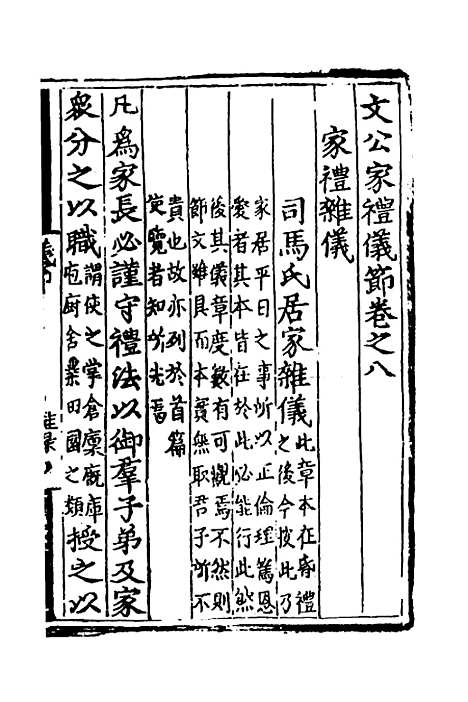 文公家禮儀節卷之八
家禮雜儀
司馬氏居家雜儀
此章本在昏禮
之後今按此乃
家居平日之事所以正倫理篤恩
愛者其本皆在於此必能行此然
後其儀章度數有可觀焉不然則
節文雖具而本實無取君子所不
貴也故亦列於首篇
使覽者知所先焉
凡爲家長必謹守禮法以御羣子弟及家
衆分之以職
謂使之掌倉廩廐庫
庖厨舍業田園之類
授之以